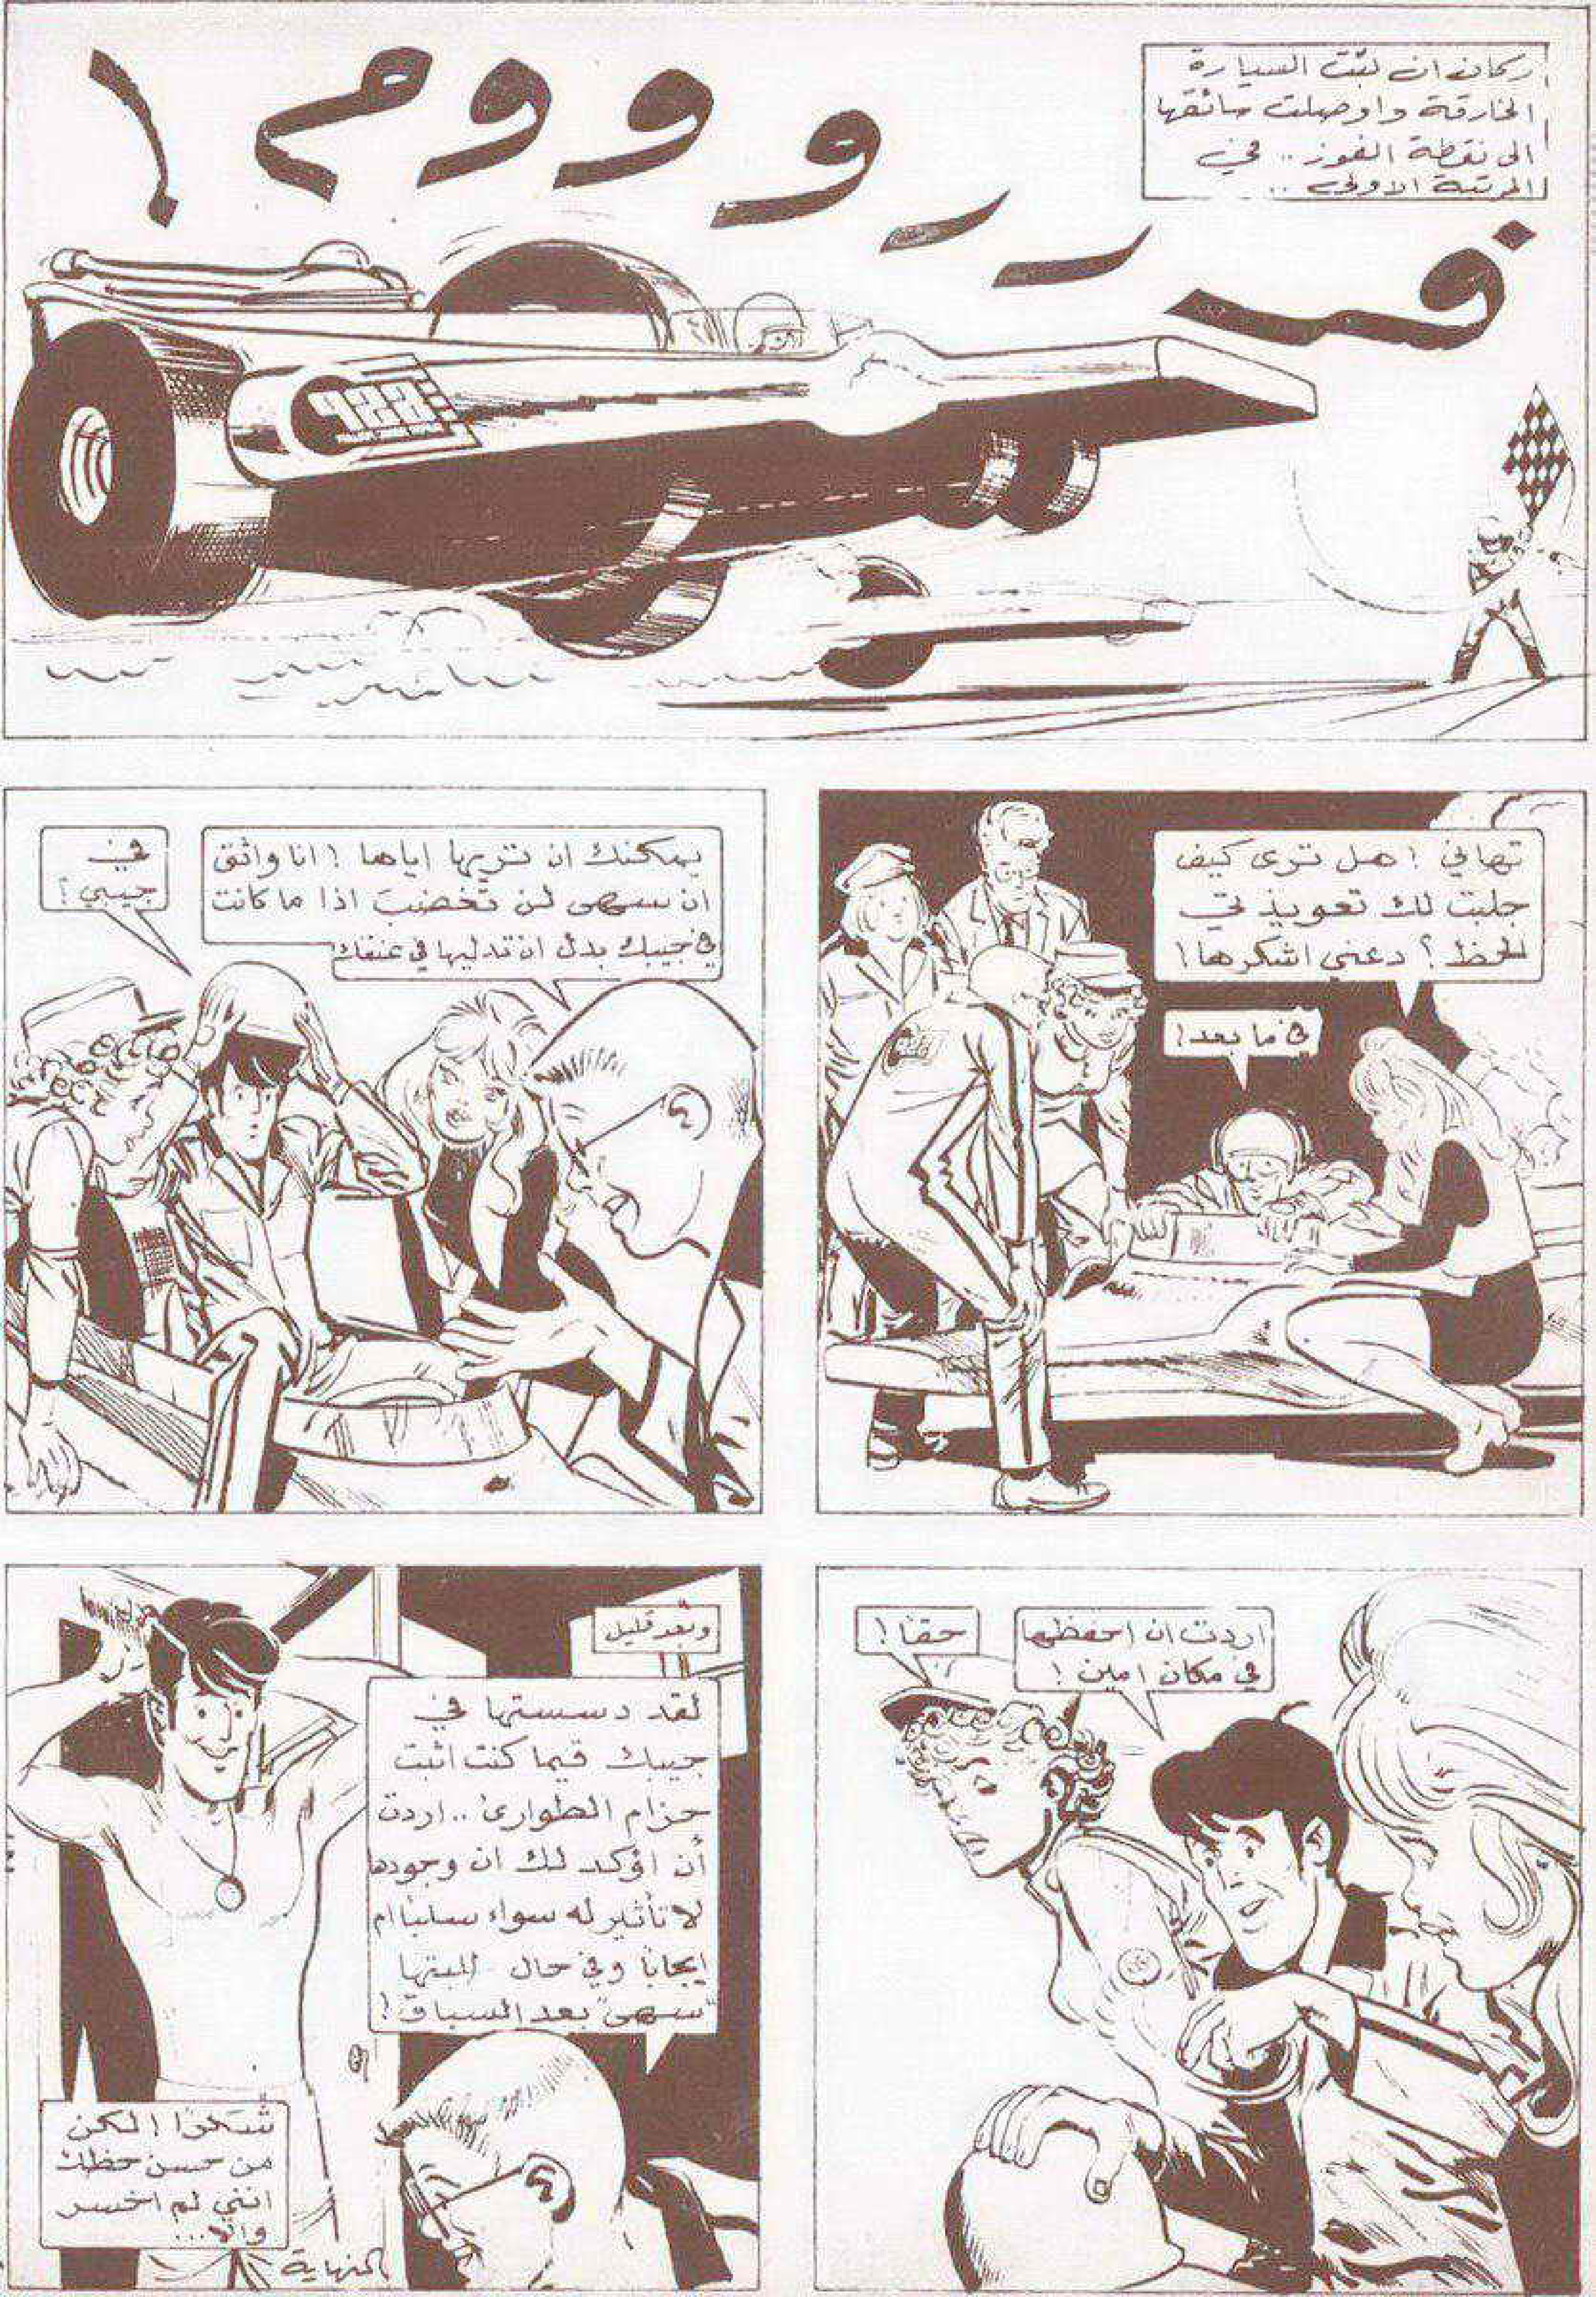 وكان ان لبّت السيارة
الخارقة واوصلت سائقها
الى نقطة الفوز .. في
المرتبة الاولى ..
فررروووووم !
تهاني ! هل ترى كيف
جلبت لك تعويذتي
الحظ ؟ دعني اشكرها !
في ما بعد !
يمكنك ان تريها اياها ! انا واثق
ان سهى لن تغضب اذا ما كانت
في جيبك بدل ان تدليها في عنقك
في
جيبي ؟
اردت ان احفظها
في مكان امين !
حقا !
وبعد قليل
لقد دسستها في
جيبك فيما كنت اثبت
حزام الطوارئ .. اردت
أن اؤكد لك ان وجودها
لا تأثير له سواء سلبا ام
ايجابا وفي حال طلبتها
"سهى" بعد السباق !
شكرا ! لكن
من حسن حظك
انني لم اخسر
والا ...
النهاية